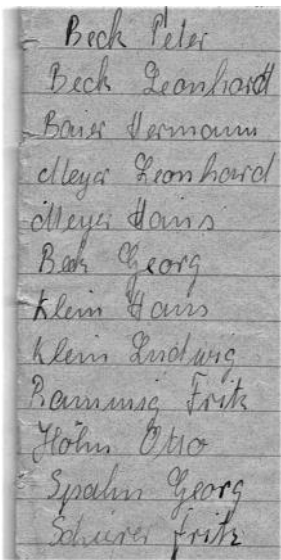 Beck Peter
Beck Leonhard
Baier Hermann
Meyer Leonhard
Meyer Hans
Beck Georg
Klein Hans
Klein Ludwig
Rammig Fritz
Höhn Otto
Spahn Georg
Scheurer Fritz